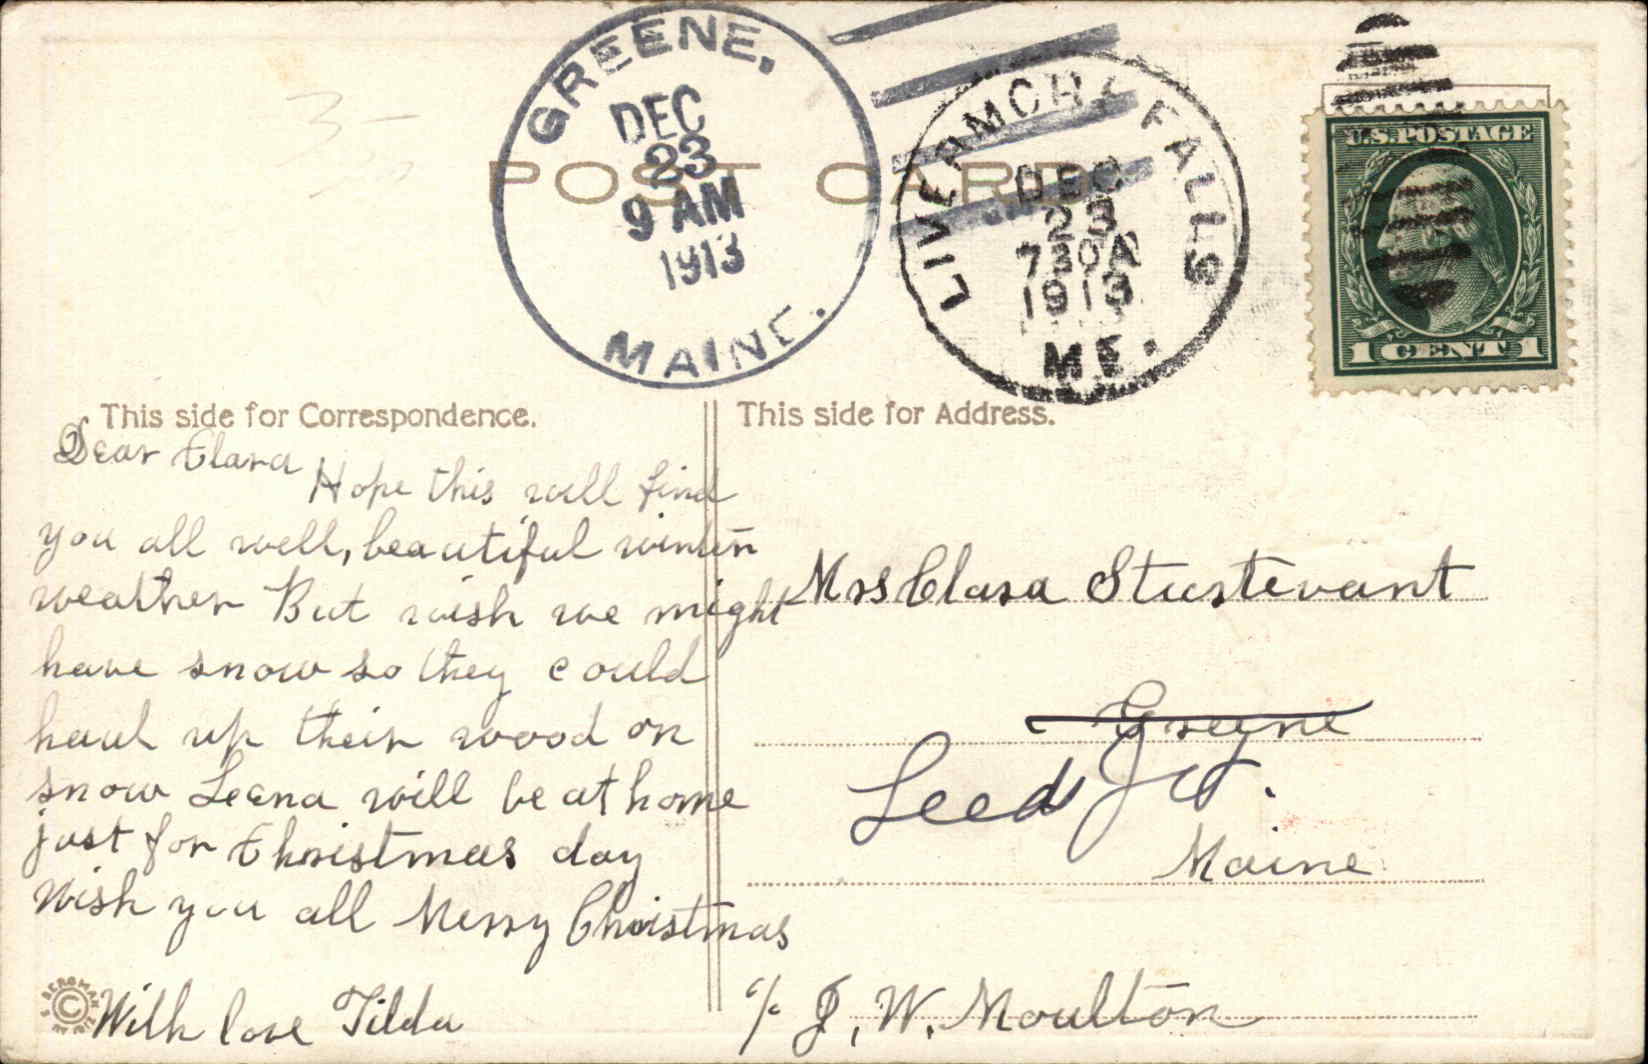 GREENE,
DEC
23
9 AM
1913
MAINE.
LIVERMORE FALLS
DEC
23
730A
1913
ME.
U.S. POSTAGE
1 CENT 1
POST CARD
This side for Correspondence.
This side for Address.
Dear Clara
Hope this will find
you all well, beautiful winter
weather But wish we might
have snow so they could
haul up their wood on
snow Leena will be at home
just for Christmas day
Wish you all Merry Christmas
With love Tilda
Mrs Clara Sturtevant
Greene
Leeds Jct.
Maine
c/o J. W. Moulton
© S. BERGMAN